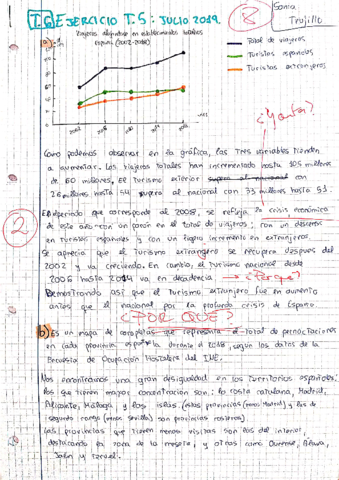 T.5 EJERCICIO T.5: JULIO 2019.
8
Sonia
Trujillo
Viajeros alojados en establecimientos hoteleros
España (2002-2016)
a)
Total de viajeros
Turistas españoles
Turistas extranjeros
2002
¿Y antes?
Como podemos observar en la gráfica, las tres variables tienden
a aumentar. Los viajeros totales han incrementado hasta 105 millones
de 60 millones. El turismo exterior supera al nacional con
26 millones hasta 54 supera al nacional con 35 millones hasta 51.
El periodo que corresponde al 2008, se refleja la crisis económica
de este año con un parón en el total de viajeros; con un descenso
en turistas españoles y con un incremento en extranjeros.
Se aprecia que el turismo extranjero se recupera después del
2002 y va creciendo. En cambio, el turismo nacional desde
2006 hasta 2014 va en decadencia → ¿Por qué?
Demostrando así que el turismo extranjero fue en aumento
antes que el nacional por la profunda crisis de España.
¿POR QUÉ?
2
b) Es un mapa de coropletas que representa el total de pernoctaciones
en cada provincia española durante el 2016, según los datos de la
Encuesta de Ocupación Hotelera del INE.
Nos encontramos una gran desigualdad en los territorios españoles;
los que tienen mayor concentración son: la costa catalana, Madrid,
Alicante, Málaga y las islas. (estas provincias (menos Madrid) y las de
segundo rango (menos Sevilla) son provincias costeras).
Las provincias que tienen menos visitas son las del interior,
destacando la zona de la meseta, y otras como Ourense, Álava,
Jaén y Teruel.